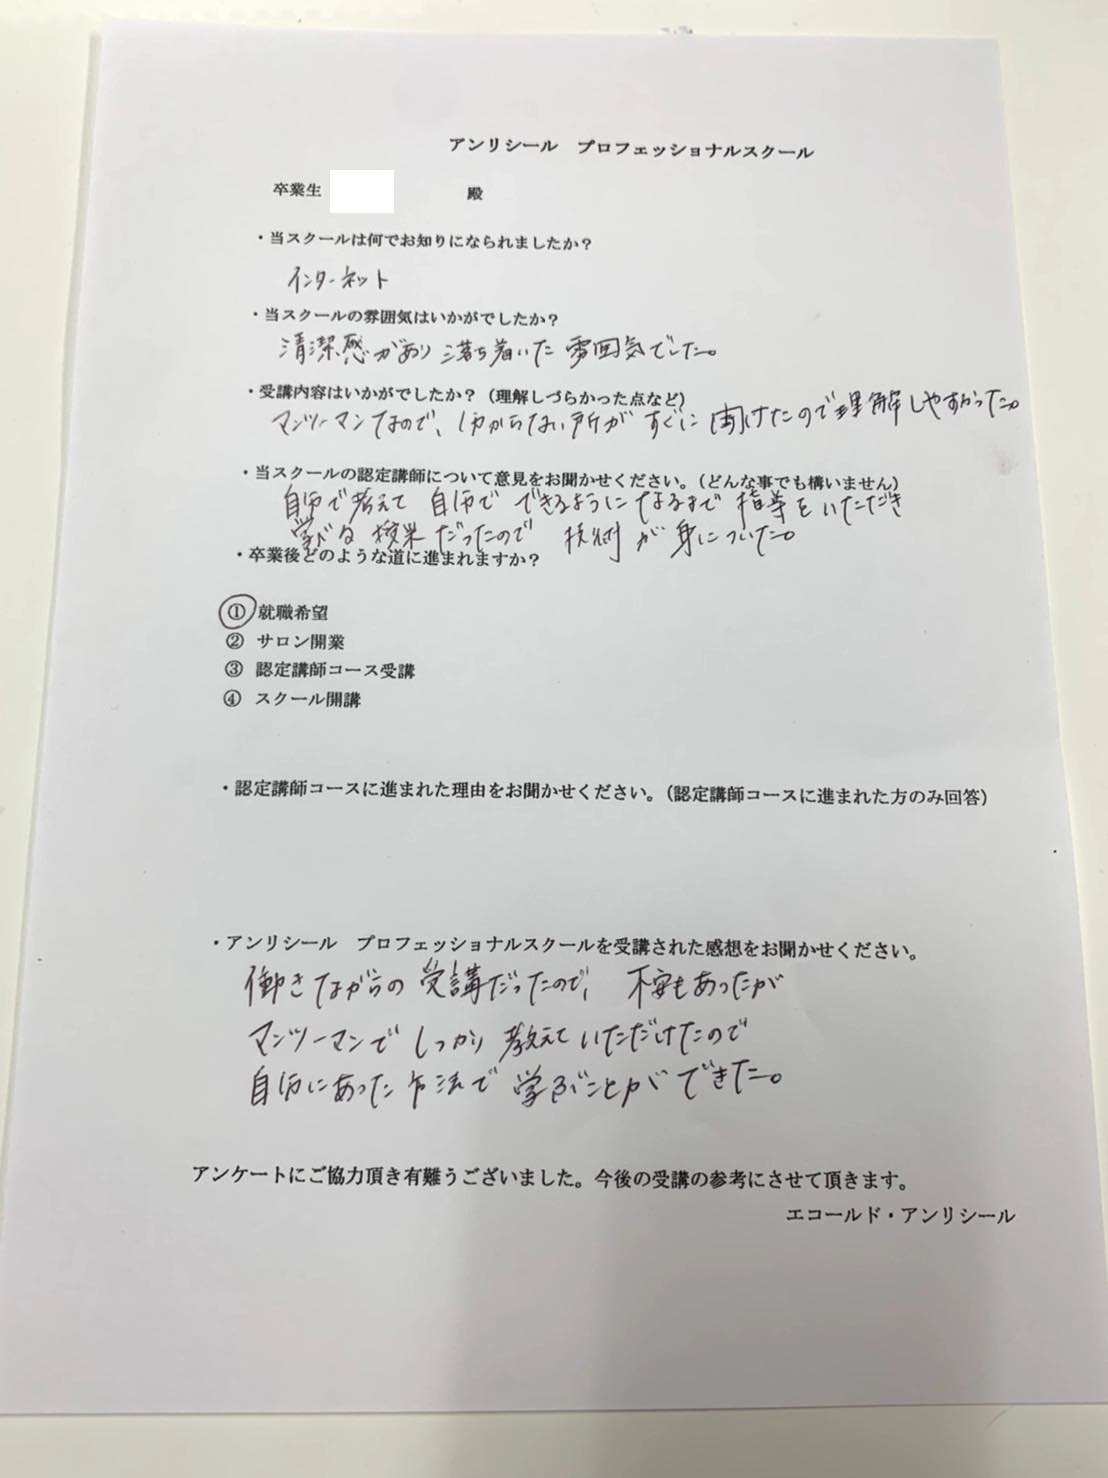 アンリシール　プロフェッショナルスクール
卒業生　殿
・当スクールは何でお知りになられましたか？
インターネット
・当スクールの雰囲気はいかがでしたか？
清潔感があり落ち着いた雰囲気でした。
・受講内容はいかがでしたか？（理解しづらかった点など）
マンツーマンなので、分からない所がすぐに聞けたので理解しやすかった。
・当スクールの認定講師について意見をお聞かせください。（どんな事でも構いません）
自分で考えて自分でできるようになるまで指導をいただき
学べる授業だったので技術が身についた。
・卒業後どのような道に進まれますか？
① 就職希望
② サロン開業
③ 認定講師コース受講
④ スクール開講
・認定講師コースに進まれた理由をお聞かせください。（認定講師コースに進まれた方のみ回答）
・アンリシール　プロフェッショナルスクールを受講された感想をお聞かせください。
働きながらの受講だったので、不安もあったが
マンツーマンでしっかり教えていただけたので
自分にあった方法で学ぶことができた。
アンケートにご協力頂き有難うございました。今後の受講の参考にさせて頂きます。
エコールド・アンリシール